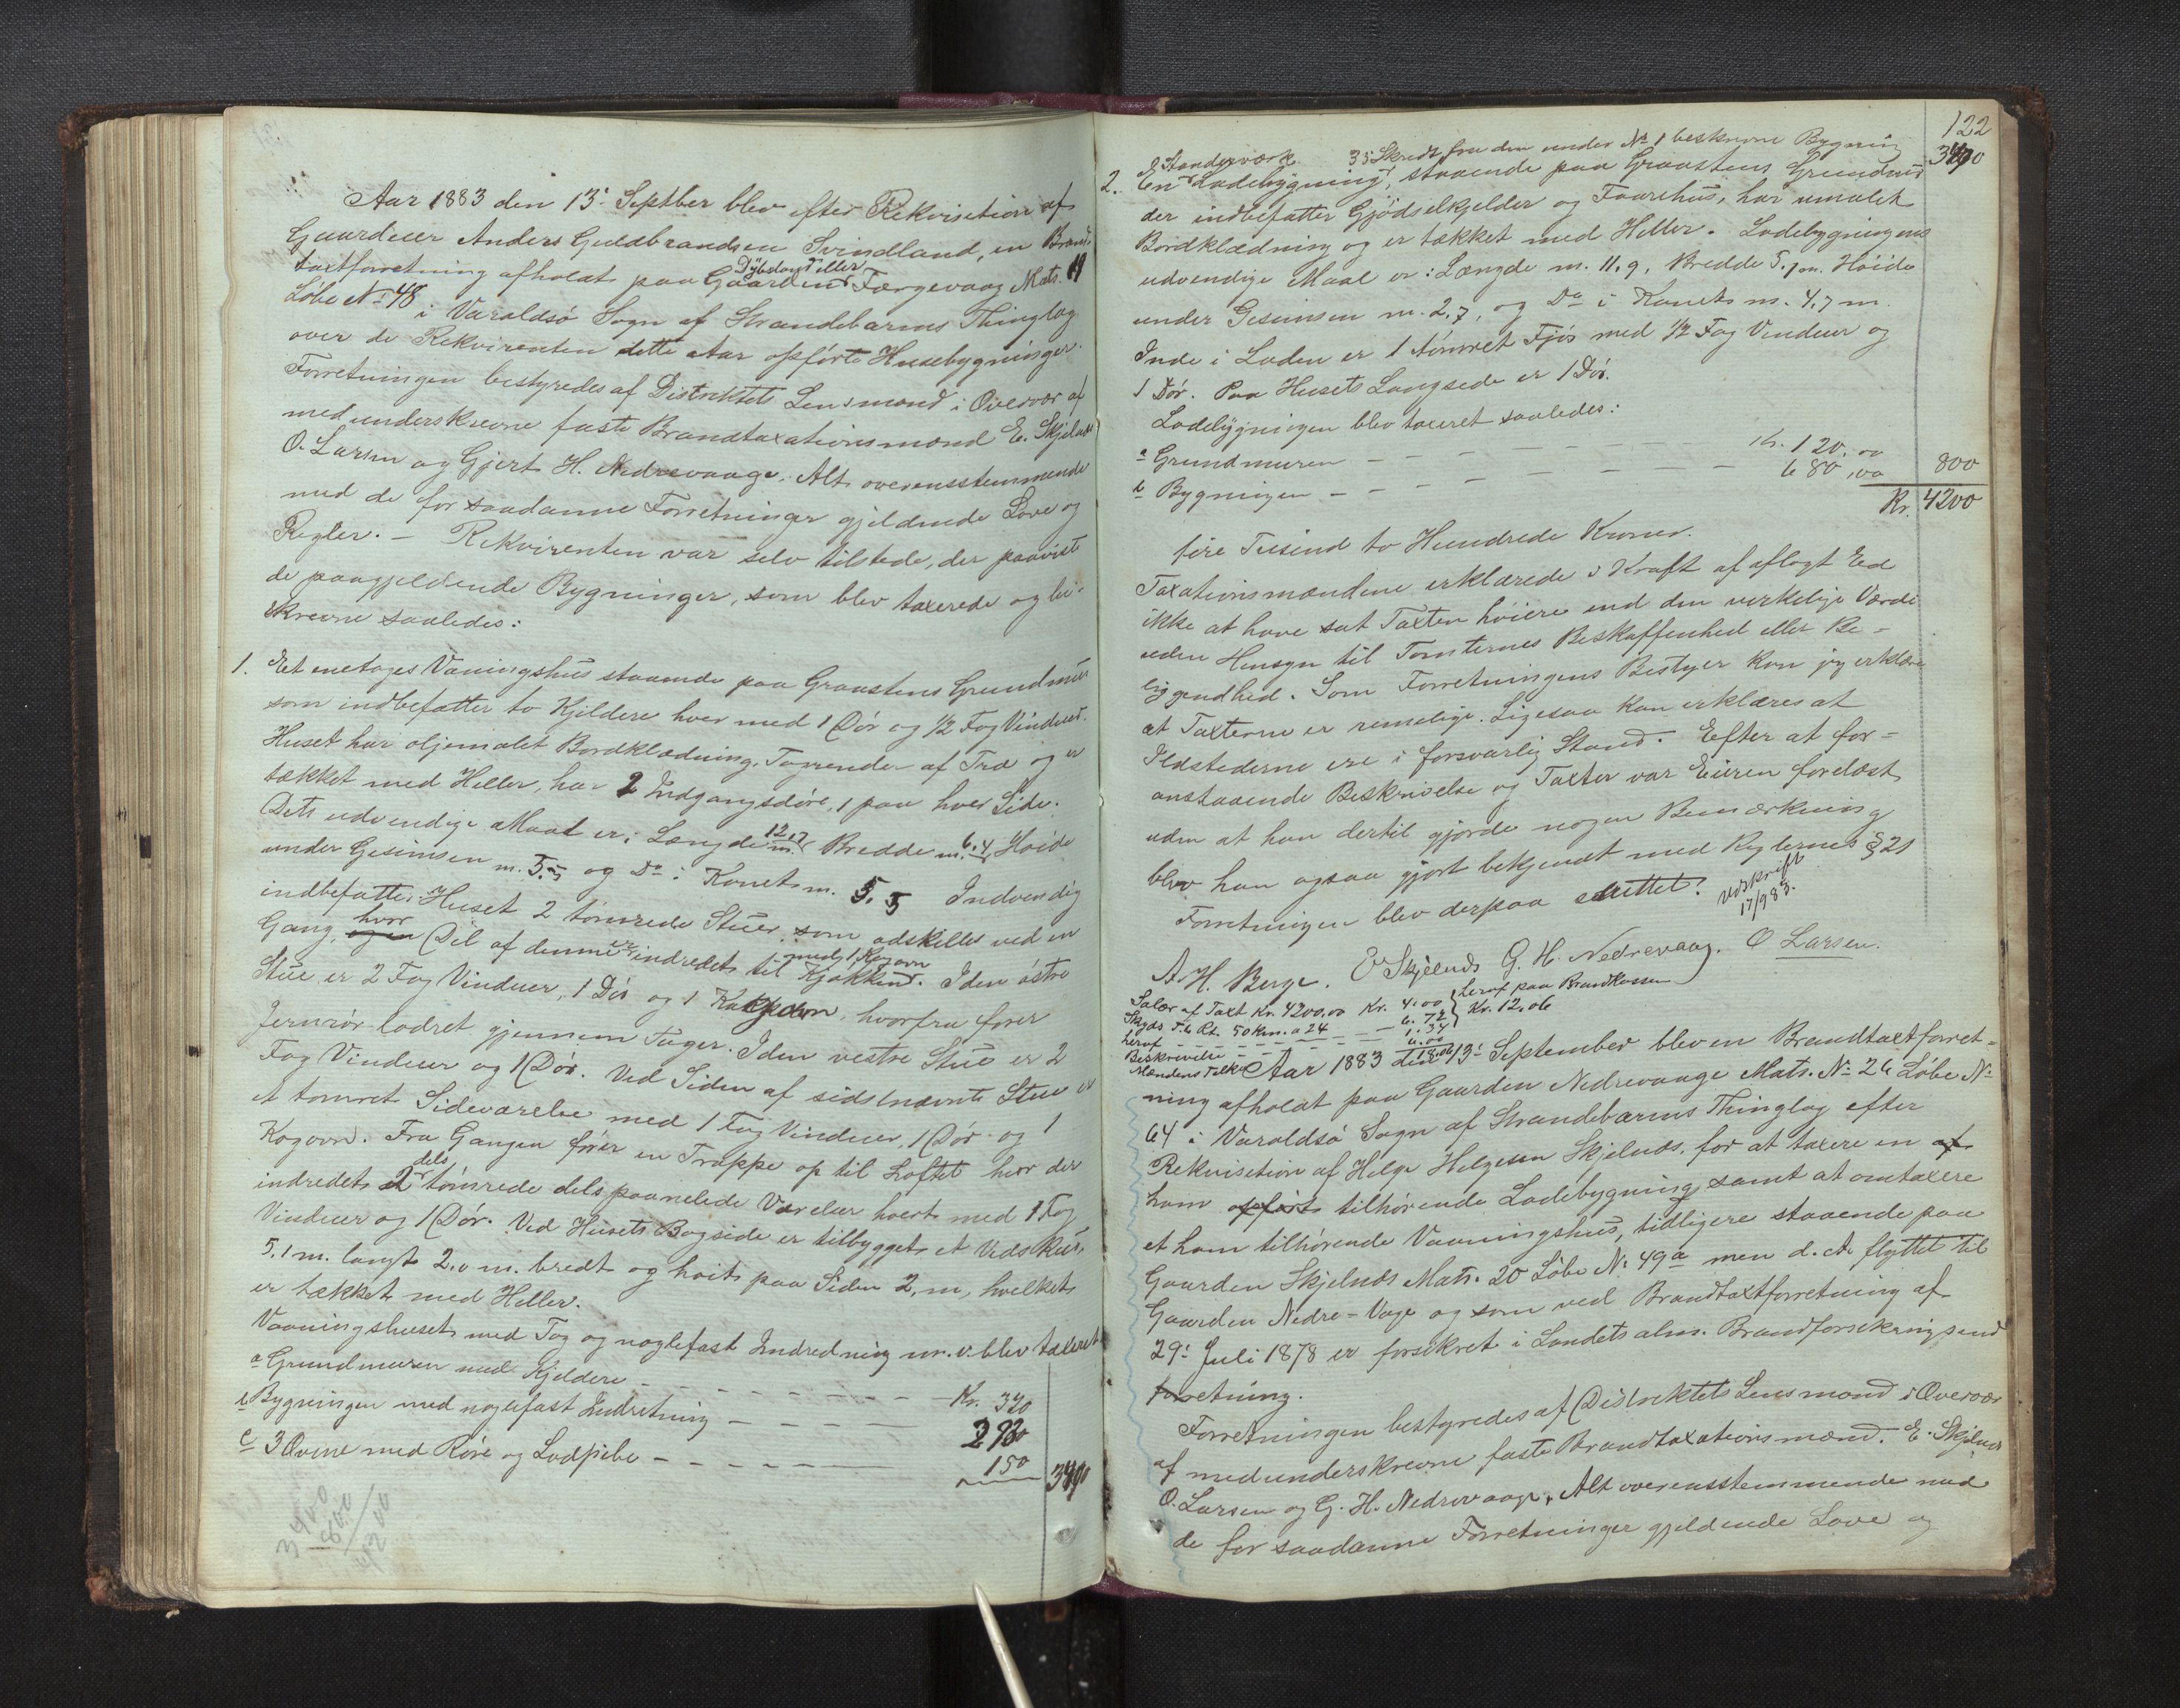 Aar 1883 den 13: Septber blev efter Rekvisition af
Gaardeier Anders Guldbrandsen Svindland, en Brand-
taxtforretning afholdt paa Gaarden Dybdan eller Færgevaag Mats. 19
Løbe No 48 i Varaldsö Sogn af Strandebarms Thinglag
over de Rekvirenten dette Aar opførte Husebygninger.
Forretningen bestyredes af Distriktets Lensmand i Overvær af
medunderskrevne faste Brandtaxationsmænd E. Skjelnæs
O. Larsen og Gjert H. Nedrevaage. Alt overensstemmende
med de for saadanne Forretninger gjeldende Love og
Regler. – Rekvirenten var selv tilstede, der paaviste
de paagjeldende Bygninger, som blev taxerede og be-
skrevne saaledes:
1. Et enetages Vaningshus staaende paa Graastens Grundmur
som indbefatter to Kjeldere hver med 1 Dör og 1/2 Fag Vinduer.
Huset har oljemalet Bordklædning, Tagrender af Træ og er
tækket med Heller, har 2 Indgangsdöre, 1 paa hver Side.
Dets udvendige Maal er: Længde m. 12.17 Bredde m. 6.4 Höide
under Gesimsen m. 3.5 og Do i Kanets m. 5.5 Indvendig
indbefatter Huset 2 tömrede Stuer, som adskilles ved en
Gang, hvor en Del af denne er indredet til Kjökken med 1 Kogovn. I den östre
Stue er 2 Fag Vinduer, 1 Dör og 1 Kakkelovn, hvorfra fører
Jernrör lodret gjennem Taget. I den vestre Stue er 2
Fag Vinduer og 1 Dör. Ved Siden af sidstnævnte Stue er
et tömret Sideværelse med 1 Fag Vinduer, 1 Dör og 1
Kogovn. Fra Gangen förer en Trappe op til Loftet hvor der
indredet 2 dels tömrede dels paanelede Værelser hvert med 1 Fag
Vinduer og 1 Dör. Ved Husets Bagside er tilbygget et Vedskur,
5.1 m. langt 2.0 m. bredt og höit paa Siden 2, m, hvilket
er tækket med Heller.
Vaaningshuset med Tag og naglefast Indredning m. v. blev taxeret
a Grundmuren med Kjeldere – – – – Kr. 320
b Bygningen med naglefast Indretning – – – – 2930
c 3 Ovne med Röre og Lodpibe – – – – 150 3400
3400
800
4200
122
2. En Standerværk Ladebygning, 35 Skridt fra den under No 1 beskrevne Bygning 3400
staaende paa Graastens Grundmur
der indbefatter Gjödselkjelder og Faarehus, har umalet
Bordklædning og er tækket med Heller. Ladebygningens
udvendige Maal er: Længde m. 11.9, Bredde 5.7 m. Höide
under Gesimsen m. 2.7, og Do i Kanets m. 4.7 m.
Inde i Laden er 1 tömret Fjös med 1/2 Fag Vinduer og
1 Dör. Paa Husets Langside er 1 Dör.
Ladebygningen blev taxeret saaledes:
a Grundmuren – – – – Kr. 120,00
b Bygningen – – – – 680,00 800
Kr. 4200
fire Tusind to Hundrede Kroner.
Taxationsmændene erklærede i Kraft af aflagt Ed
ikke at have sat Taxten höiere end den virkelige Værdi
uden Hensyn til Tomternes Beskaffenhed eller Be-
liggendhed. Som Forretningens Bestyrer kan jeg erklære
at Taxterne er rimelige. Ligesaa kan erklæres at
Ildstederne ere i forsvarlig Stand. Efter at for-
anstaaende Beskrivelse og Taxter var Eieren forelæst
uden at han dertil gjorde nogen Bemærkning
blev han ogsaa gjort bekjendt med Reglernes § 21
Forretningen blev derpaa sluttet.
Udskrift
17/9 83.
A. H. Berge. E Skjelnæs G. H. Nedrevaag. O Larsen.
Salær af Taxt Kr. 4200.00 Kr. 4.00 } heraf paa Brandkassen
Skyds T & Rt. 50 km. a 24 – – 6.72 } Kr. 12.06
heraf – – – – 1.34
Beskrivelse – – – – 6.00
Mændens 18.06
Aar 1883 den 13: September blev en Brandtaxtforret-
ning afholdt paa Gaarden Nedrevaage Mats. No 26 Løbe No
64 i Varaldsö Sogn af Strandebarms Thinglag efter
Rekvisition af Helge Helgesen Skjelnæs, for at taxere en af
ham opført tilhörende Ladebygning samt at omtaxere
et ham tilhörende Vaaningshus, tidligere staaende paa
Gaarden Skjelnæs Mats. 20 Løbe No 49a men d. A. flyttet til
Gaarden Nedre-Vage og som ved Brandtaxtforretning af
29: Juli 1878 er forsikret i Landets alm. Brandforsikringsind
retning.
Forretningen bestyredes af Distriktets Lensmand i Overvær
af medunderskrevne faste Brandtaxationsmænd. E. Skjelnæs
O. Larsen og G. H. Nedrevaage. Alt overensstemmende med
de for saadanne Forretninger gjeldende Love og